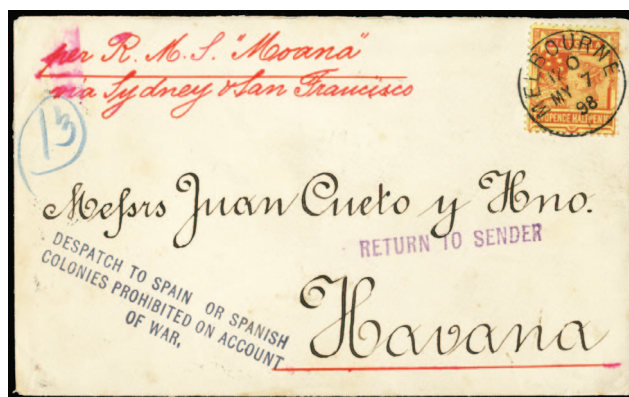 per R. M. S. "Moana"
via Sydney & San Francisco
MELBOURNE
MY 7
98
HALFPENNY
13
Messrs Juan Cueto y Hno.
RETURN TO SENDER
DESPATCH TO SPAIN OR SPANISH
COLONIES PROHIBITED ON ACCOUNT
OF WAR.
Havana